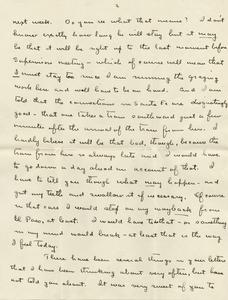 2
next week. Do you see what that means? I don't
know exactly how long he will stay but it may
be that it will be right up to the last moment before
Supervisors meeting - which of course will mean that
I must stay too since I am running the grazing
work here and will have to be on hand. And I am
told that the connections in Santa Fe are disgustingly
good - that one takes a train southward just a few
minutes after the arrival of the train from here. I
hardly believe it will be that bad, though, because the
train from here is always late and I would have
to go down a day ahead on account of that. I
have to tell you though what may happen - and
grit my teeth and swallow it if necessary. Of course
in that case I would stop on my way back from
El Paso, at least. I would have to that - or something
in my mind would break - at least that is the way
I feel today.
There have been several things in your letters
that I have been thinking about very often, but have
not told you about. It was very sweet of you to